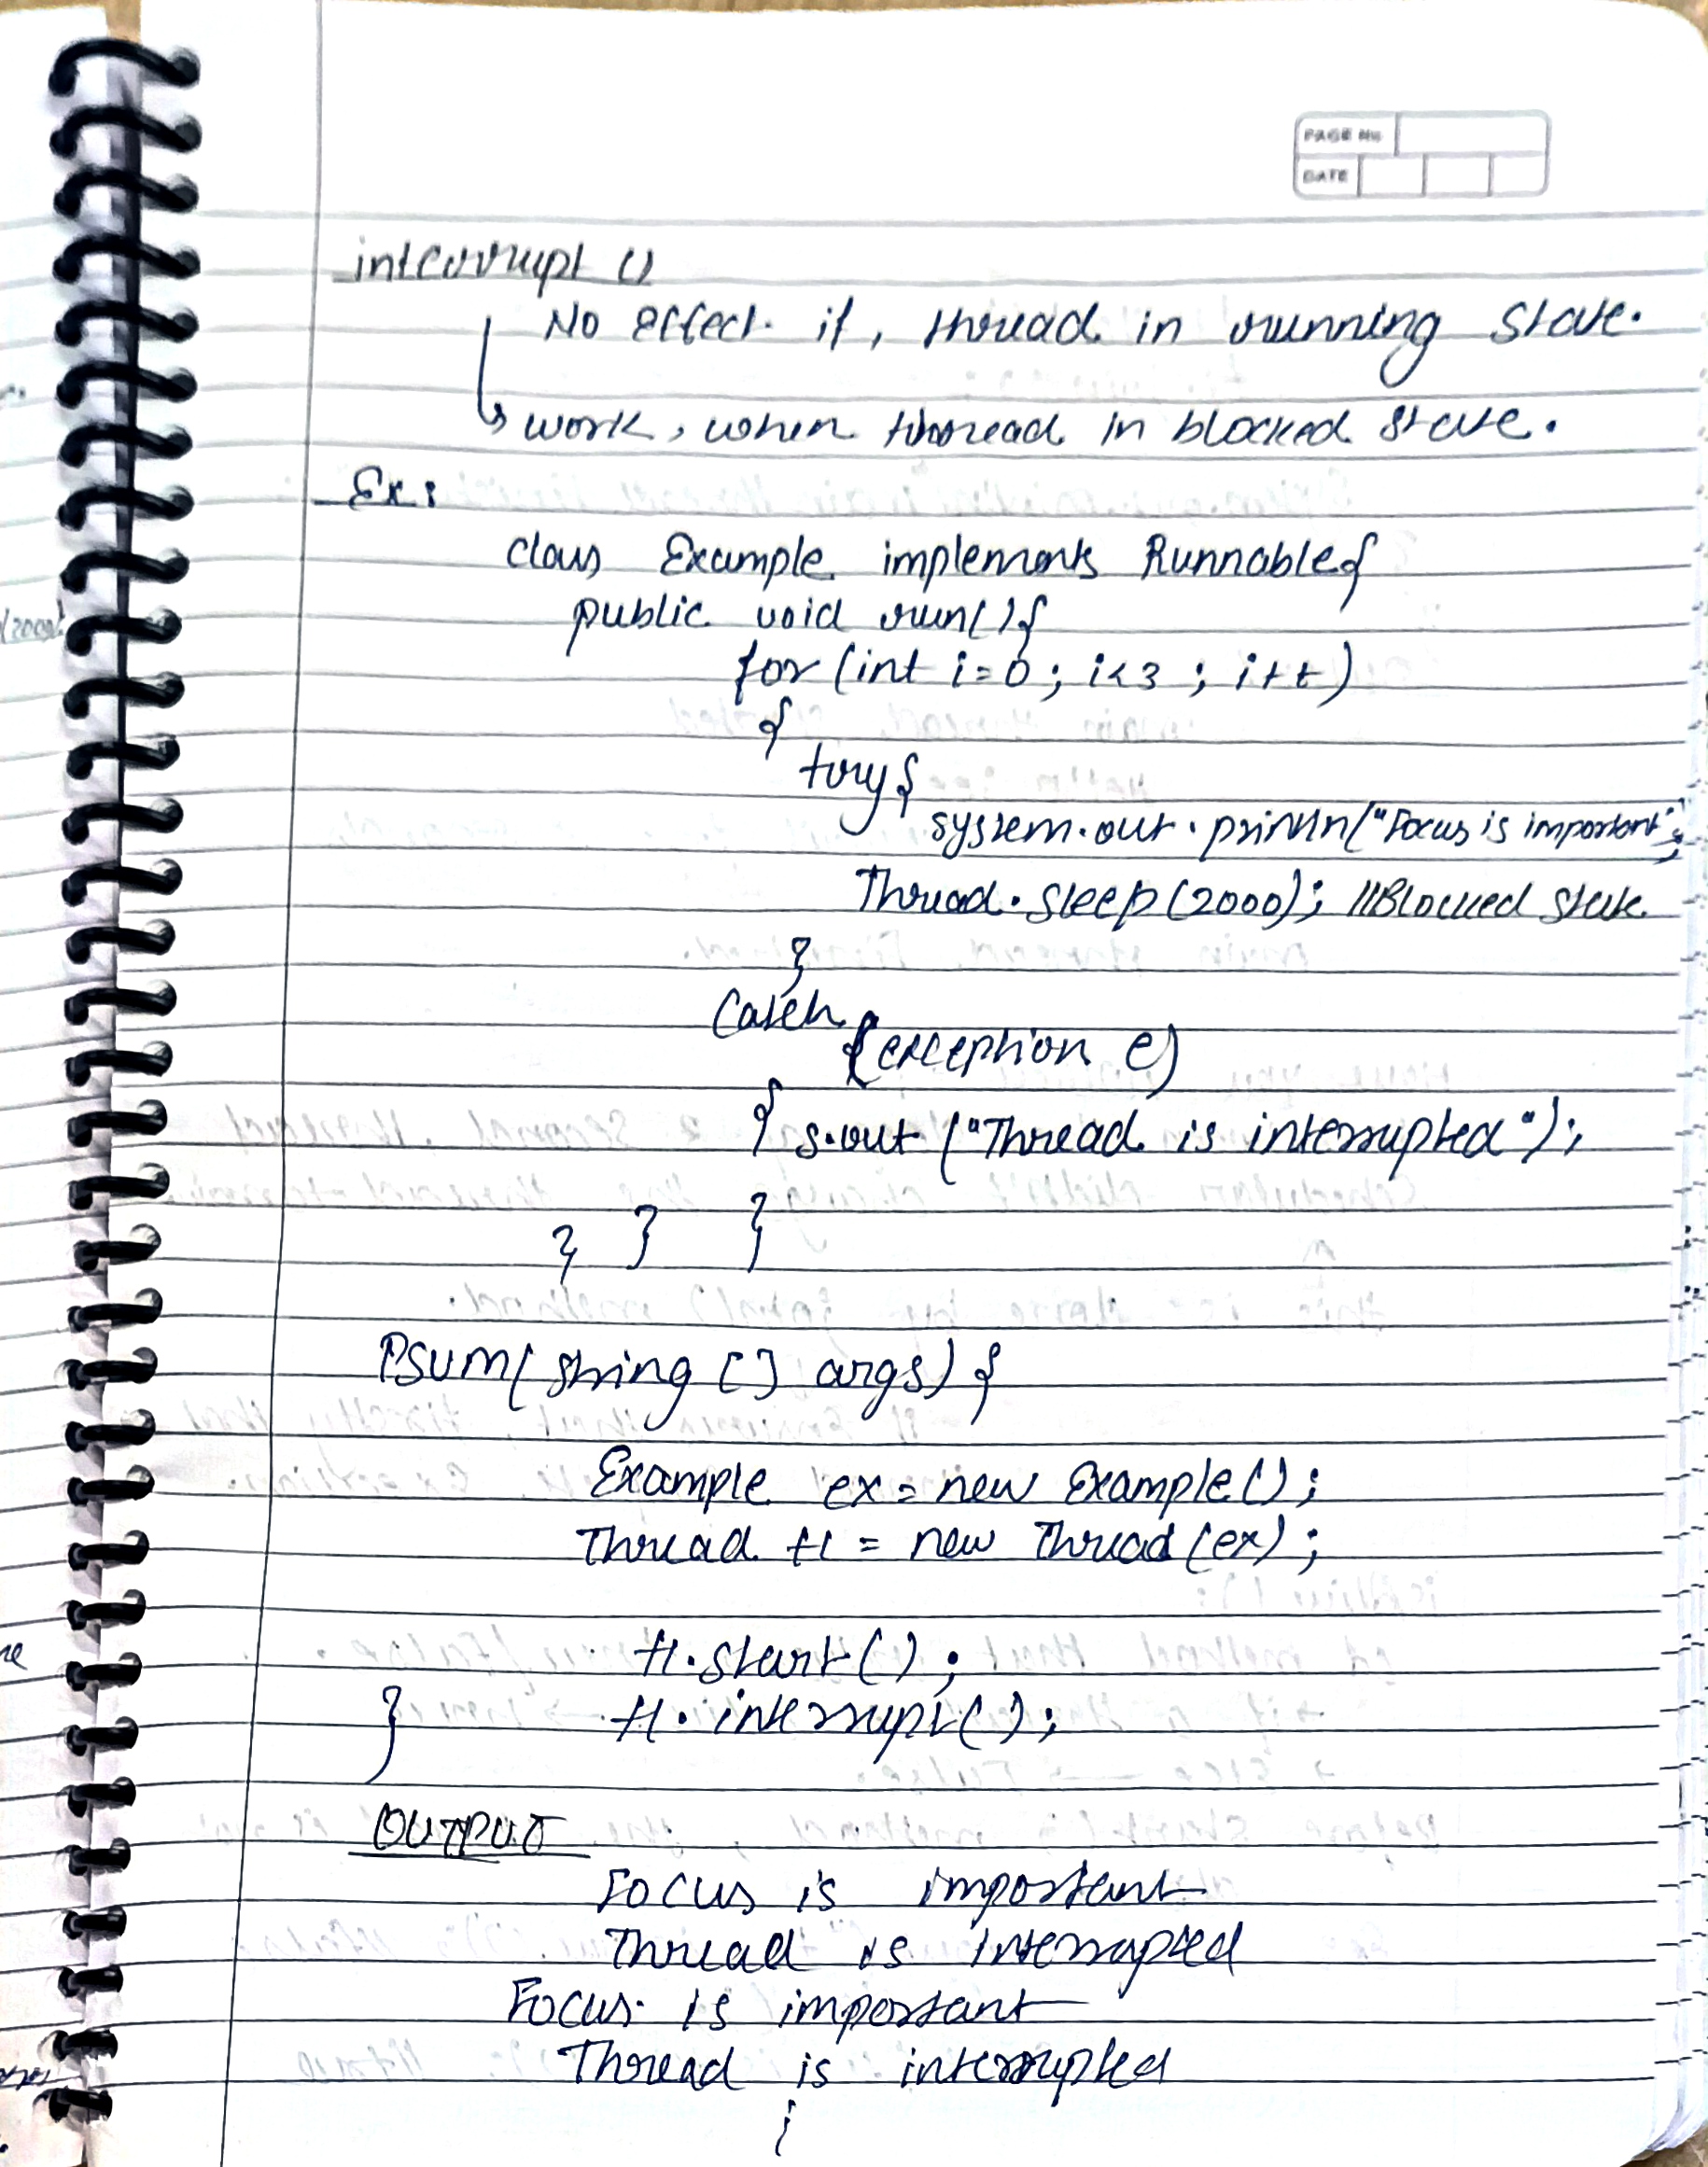 PAGE No
DATE
interrupt ()
No effect. if, thread in running state.
work, when thread in blocked state.
Ex:
class Example implements Runnable{
public void run(){
for (int i=0; i<3; i++)
{
try{
system.out.println("Focus is important";
Thread.sleep(2000); //Blocked state
}
Catch
(exception e)
{ s.out ("Thread is interrupted");
} } }
PSVM(string [] args) {
Example ex = new Example();
Thread t1 = new Thread (ex);
t1.start();
} t1.interrupt();
OUTPUT
Focus is important
Thread is interrupted
Focus is important
Thread is interrupted